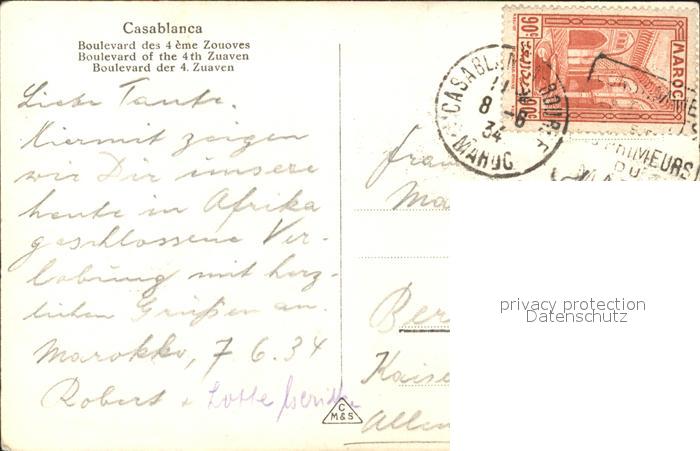 Casablanca
Boulevard des 4 ème Zouoves
Boulevard of the 4th Zuaven
Boulevard der 4. Zuaven
Liebe Tante.
Hiermit zeigen
wir Dir unsere
heute in Afrika
geschlossene Ver-
lobung mit herz-
lichen Grüßen an.
Marokko, 7.6.34
Robert + Lotte
C
M&S
90c
MAROC
90c
CASABLANCA BOURSE
11
8 -6
34
MAROC
PRIMEURS
DU
Frau
Ma
Ber
Kaise
Allem
privacy protection
Datenschutz